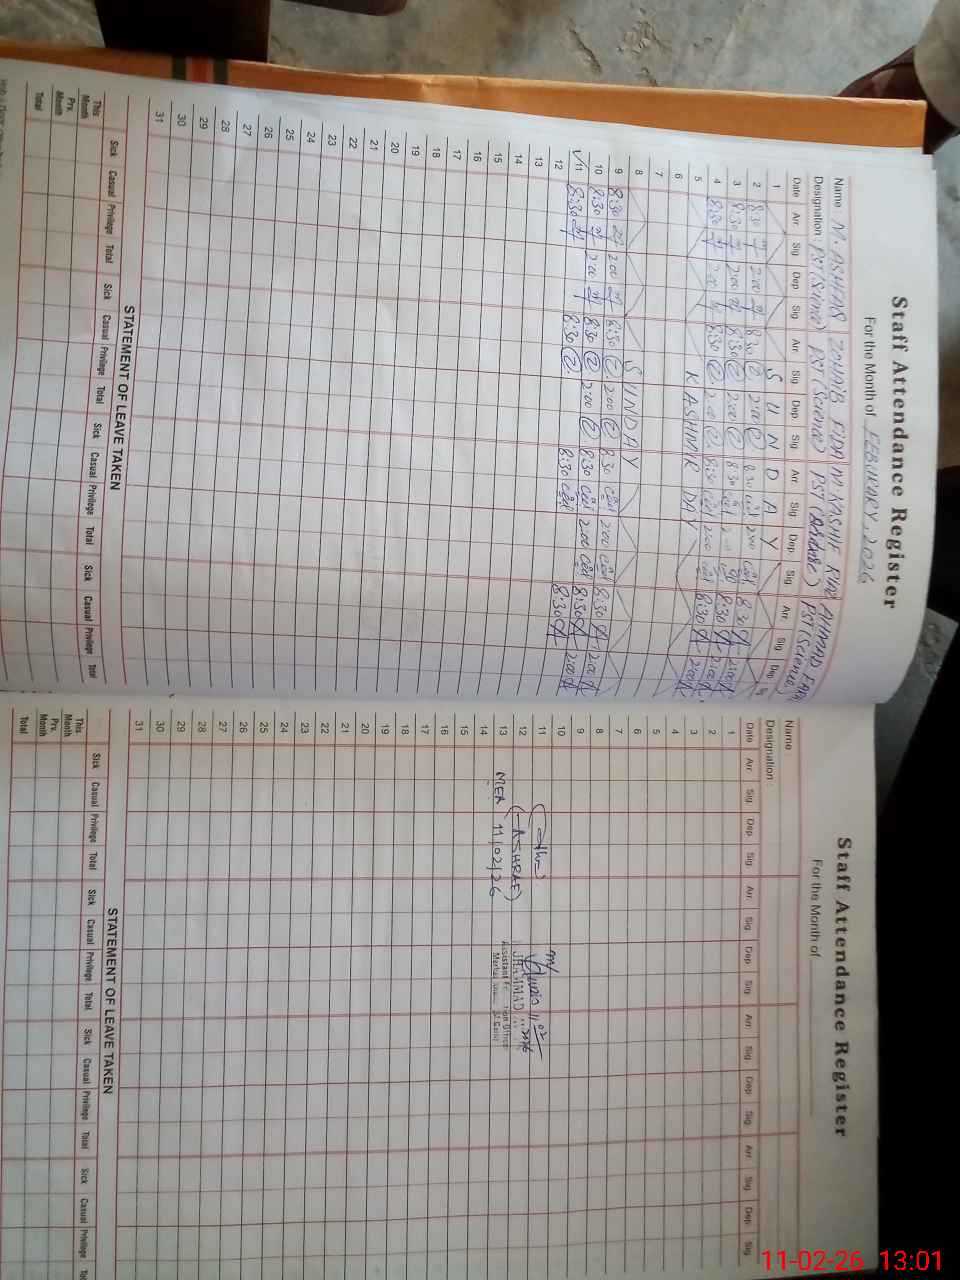 Staff Attendance Register
For the Month of FEBURARY, 2026
Name M. ASHFAQ ZOHAIB FIDA M KASHIF RIAZ AHMAD
Designation: PST(Science) PST (Science) PST PST (Science)
Date Arr. Sig. Dep. Sig. Arr. Sig. Dep. Sig. Arr. Sig. Dep. Sig. Arr. Sig. Dep. Sig.
1 S U N D A Y
2 8:30 2:00 8:30 2:00 8:30 2:00 8:30 2:00
3 8:30 2:00 8:30 2:00 8:30 2:00 8:30 2:00
4 8:30 2:00 8:30 2:00 8:30 2:00 8:30 2:00
5 KASHMIR DAY
6
7
8 SUNDAY
9 8:30 2:00 8:30 2:00 8:30 2:00 8:30 2:00
10 8:30 2:00 8:30 2:00 8:30 2:00 8:30 2:00
11 8:30 8:30 8:30 8:30
12
13
14
15
16
17
18
19
20
21
22
23
24
25
26
27
28
29
30
31
STATEMENT OF LEAVE TAKEN
Sick Casual Privilege Total Sick Casual Privilege Total Sick Casual Privilege Total Sick Casual Privilege Total
This Month
Prv. Month
Total
Staff Attendance Register
For the Month of
Name
Designation :
Date Arr. Sig. Dep. Sig. Arr. Sig. Dep. Sig. Arr. Sig. Dep. Sig. Arr. Sig. Dep. Sig.
1
2
3
4
5
6
7
8
9
10
11
12 (ASHRAF)
13 MEA 11/02/26
14
15
16
17
18
19
20
21
22
23
24
25
26
27
28
29
30
31
STATEMENT OF LEAVE TAKEN
Sick Casual Privilege Total Sick Casual Privilege Total Sick Casual Privilege Total Sick Casual Privilege
This Month
Prv. Month
Total
11-02-26 13:01